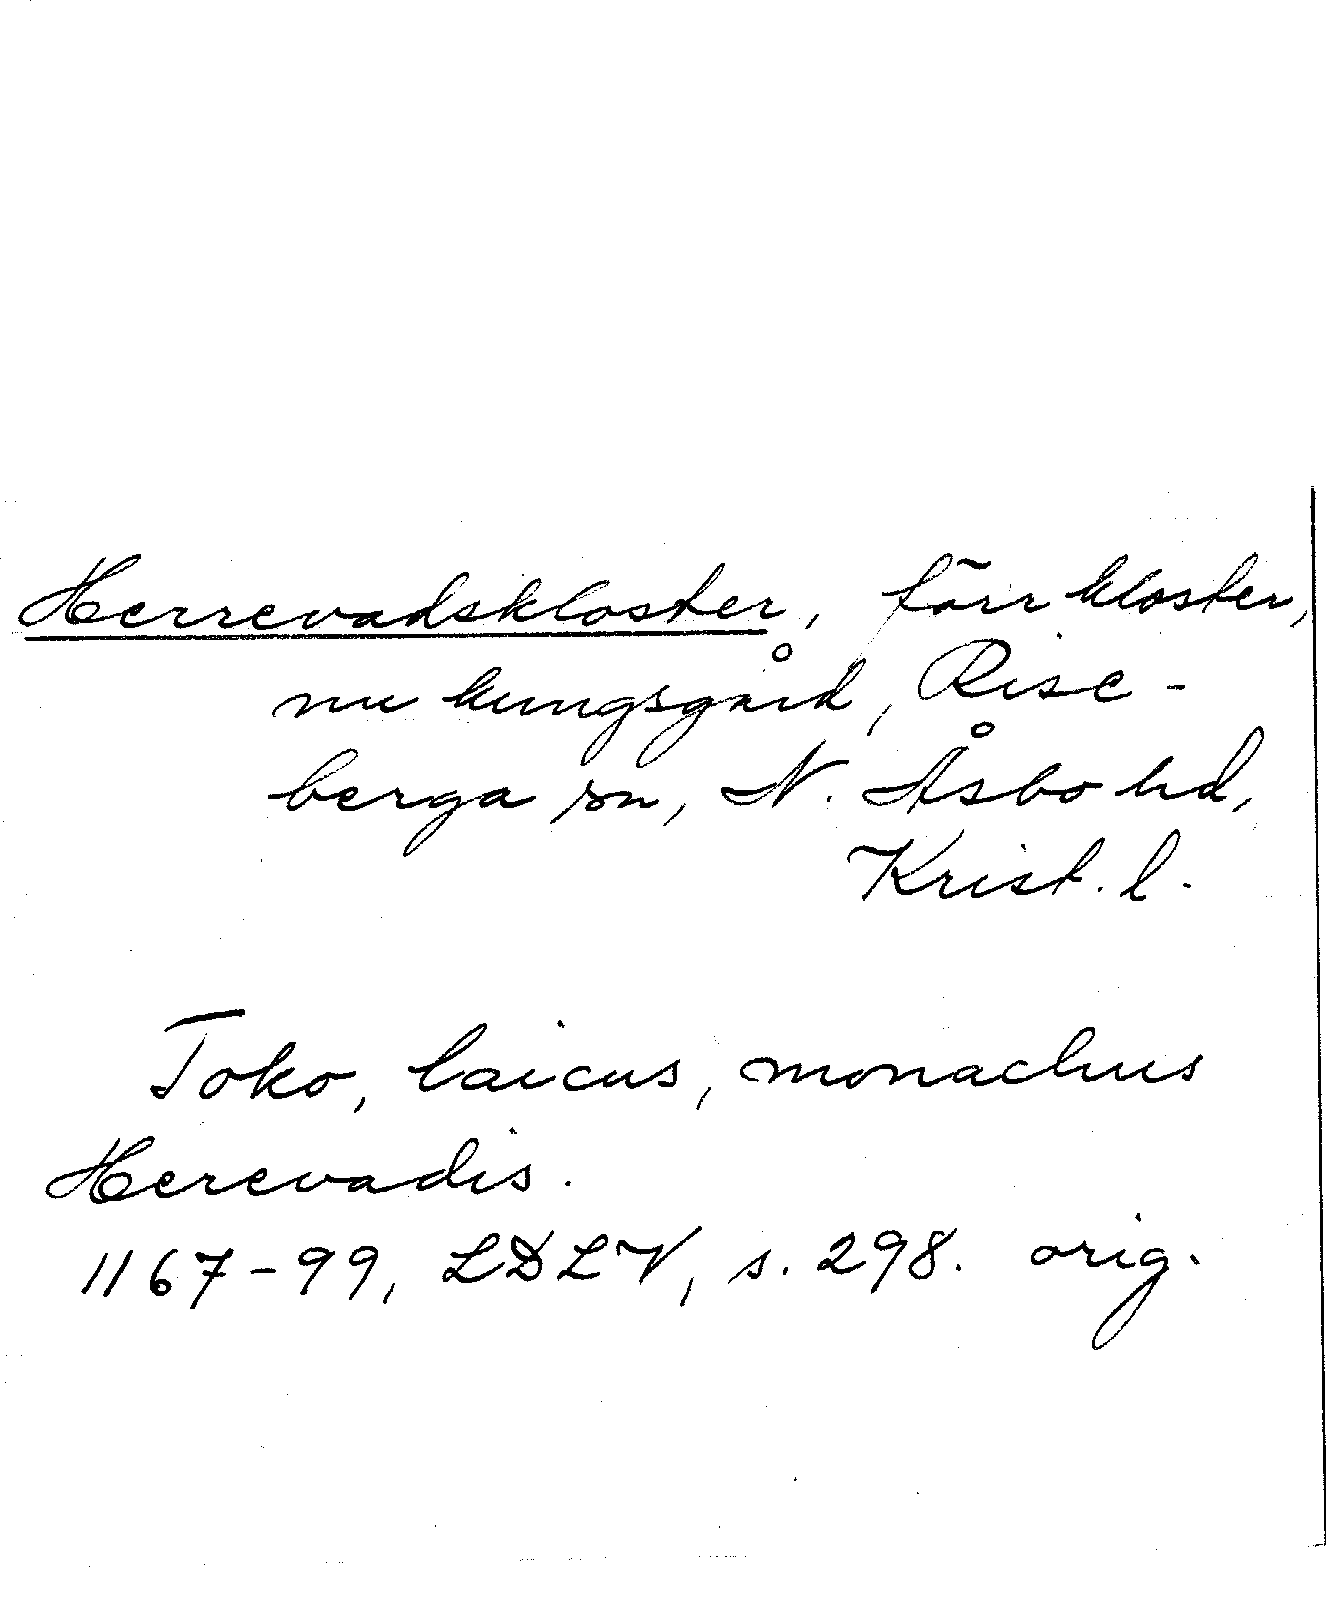 Herrevadskloster, förr kloster,
nu kungsgård, Rise-
berga sn, N. Åsbo hd,
Krist. l.
Toko, laicus, monachus
Herevadis.
1167-99, LDLV, s. 298. orig.